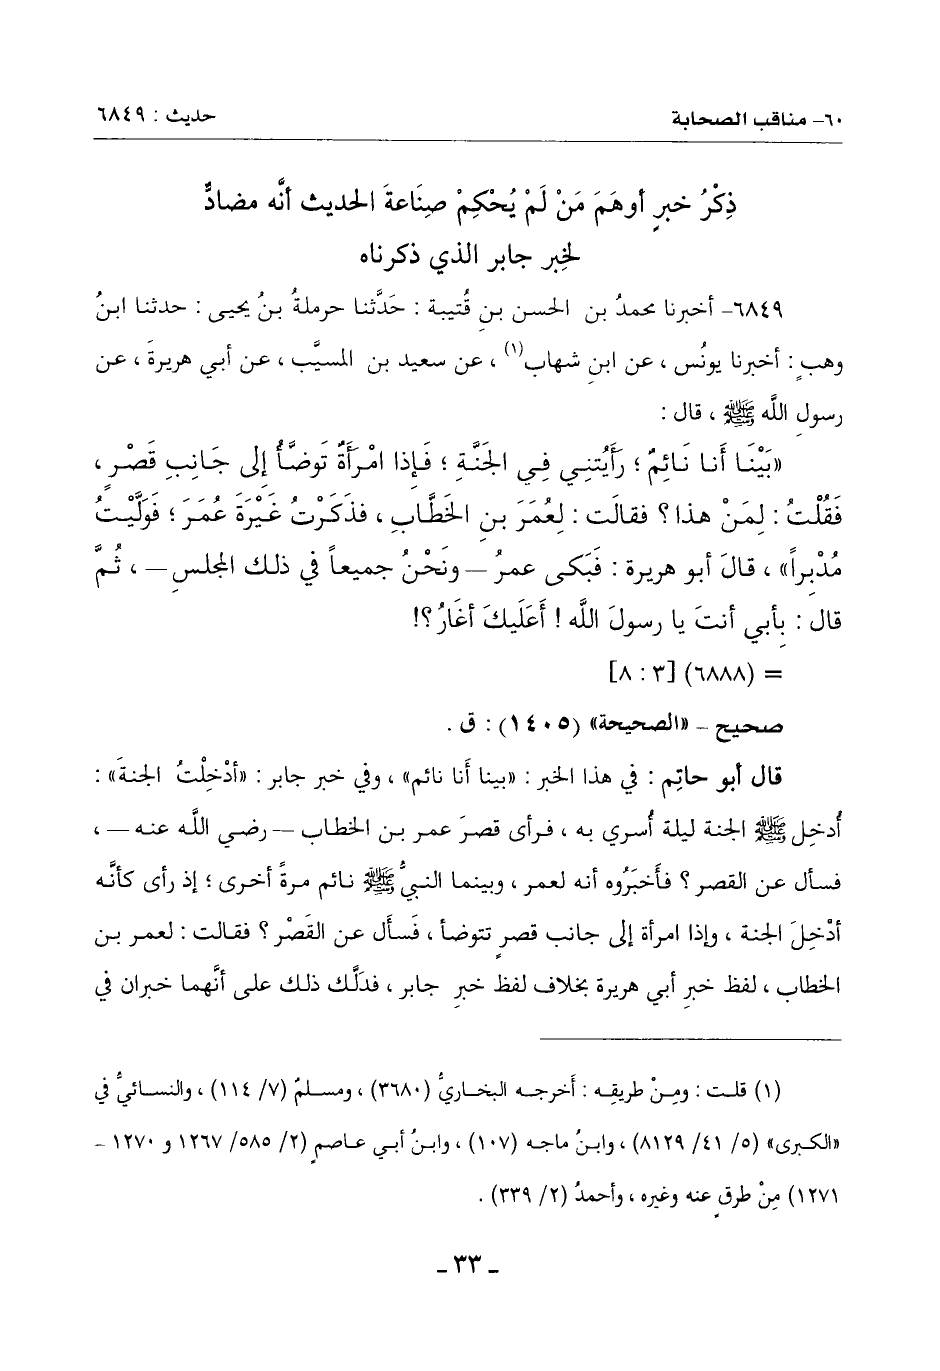 ٦٠- مناقب الصحابة حديث : ٦٨٤٩
ذِكْرُ خبرٍ أوهَمَ مَنْ لَمْ يُحْكِمْ صِنَاعةَ الحديث أنَّه مضادٌّ
لخبر جابر الذي ذكرناه
٦٨٤٩- أخبرنا محمدُ بن الحسن بنِ قُتيبة : حَدَّثنا حرملةُ بنُ يحيى : حدثنا ابنُ
وهبٍ : أخبرنا يونُس ، عن ابنِ شهاب(١) ، عن سعيد بن المسيَّب ، عن أبي هريرةَ ، عن
رسولِ اللَّه ﷺ ، قال :
«بَيْنَا أَنا نَائِمٌ ؛ رَأَيْتني فِي الجَنَّة ؛ فَإذا امْرأَةٌ تَوضَّأُ إلى جَانِبِ قَصْرٍ ،
فَقُلْتُ : لِمَنْ هذا ؟ فقالَت : لعُمَرَ بنِ الخَطَّابِ ، فذَكَرْتُ غَيْرَةَ عُمَرَ ؛ فَوَلَّيْتُ
مُدْبِراً» ، قالَ أبو هريرة : فَبَكى عمرُ – ونَحْنُ جميعاً في ذلك المجلسِ – ، ثُمَّ
قال : بِأبي أنتَ يا رسولَ اللَّه ! أَعَلَيكَ أغَارُ ؟!
= (٦٨٨٨) [٣ : ٨]
صحيح - «الصحيحة» (١٤٠٥) : ق .
قال أبو حاتِم : في هذا الخبر : «بينا أنا نائم» ، وفي خبر جابر : «أدْخِلْتُ الجنةَ» :
أُدخِل ﷺ الجنة ليلة أُسري به ، فرأى قصرَ عمر بن الخطاب – رضي اللَّه عنه – ،
فسأل عن القصر ؟ فأَخبَرُوه أنه لعمر ، وبينما النبيُّ ﷺ نائم مرةً أخرى ؛ إذ رأى كأنَّه
أدْخِلَ الجنة ، وإذا امرأة إلى جانب قصرٍ تتوضأ ، فَسأل عن القَصْر ؟ فقالت : لعمر بن
الخطاب ، لفظ خبرِ أبي هريرة بخلاف لفظ خبرِ جابر ، فدَلَّك ذلك على أنَّهما خبران في
(١) قلت : ومِنْ طريقِه : أَخرجه البخاريُّ (٣٦٨٠) ، ومسلمٌ (٧/ ١١٤) ، والنسائيُّ في
«الكبرى» (٥/ ٤١/ ٨١٢٩) ، وابنُ ماجه (١٠٧) ، وابنُ أبي عاصمٍ (٢/ ٥٨٥/ ١٢٦٧ و ١٢٧٠ -
١٢٧١) مِنْ طرقٍ عنه وغيره ، وأحمدُ (٢/ ٣٣٩) .
- ٣٣ -